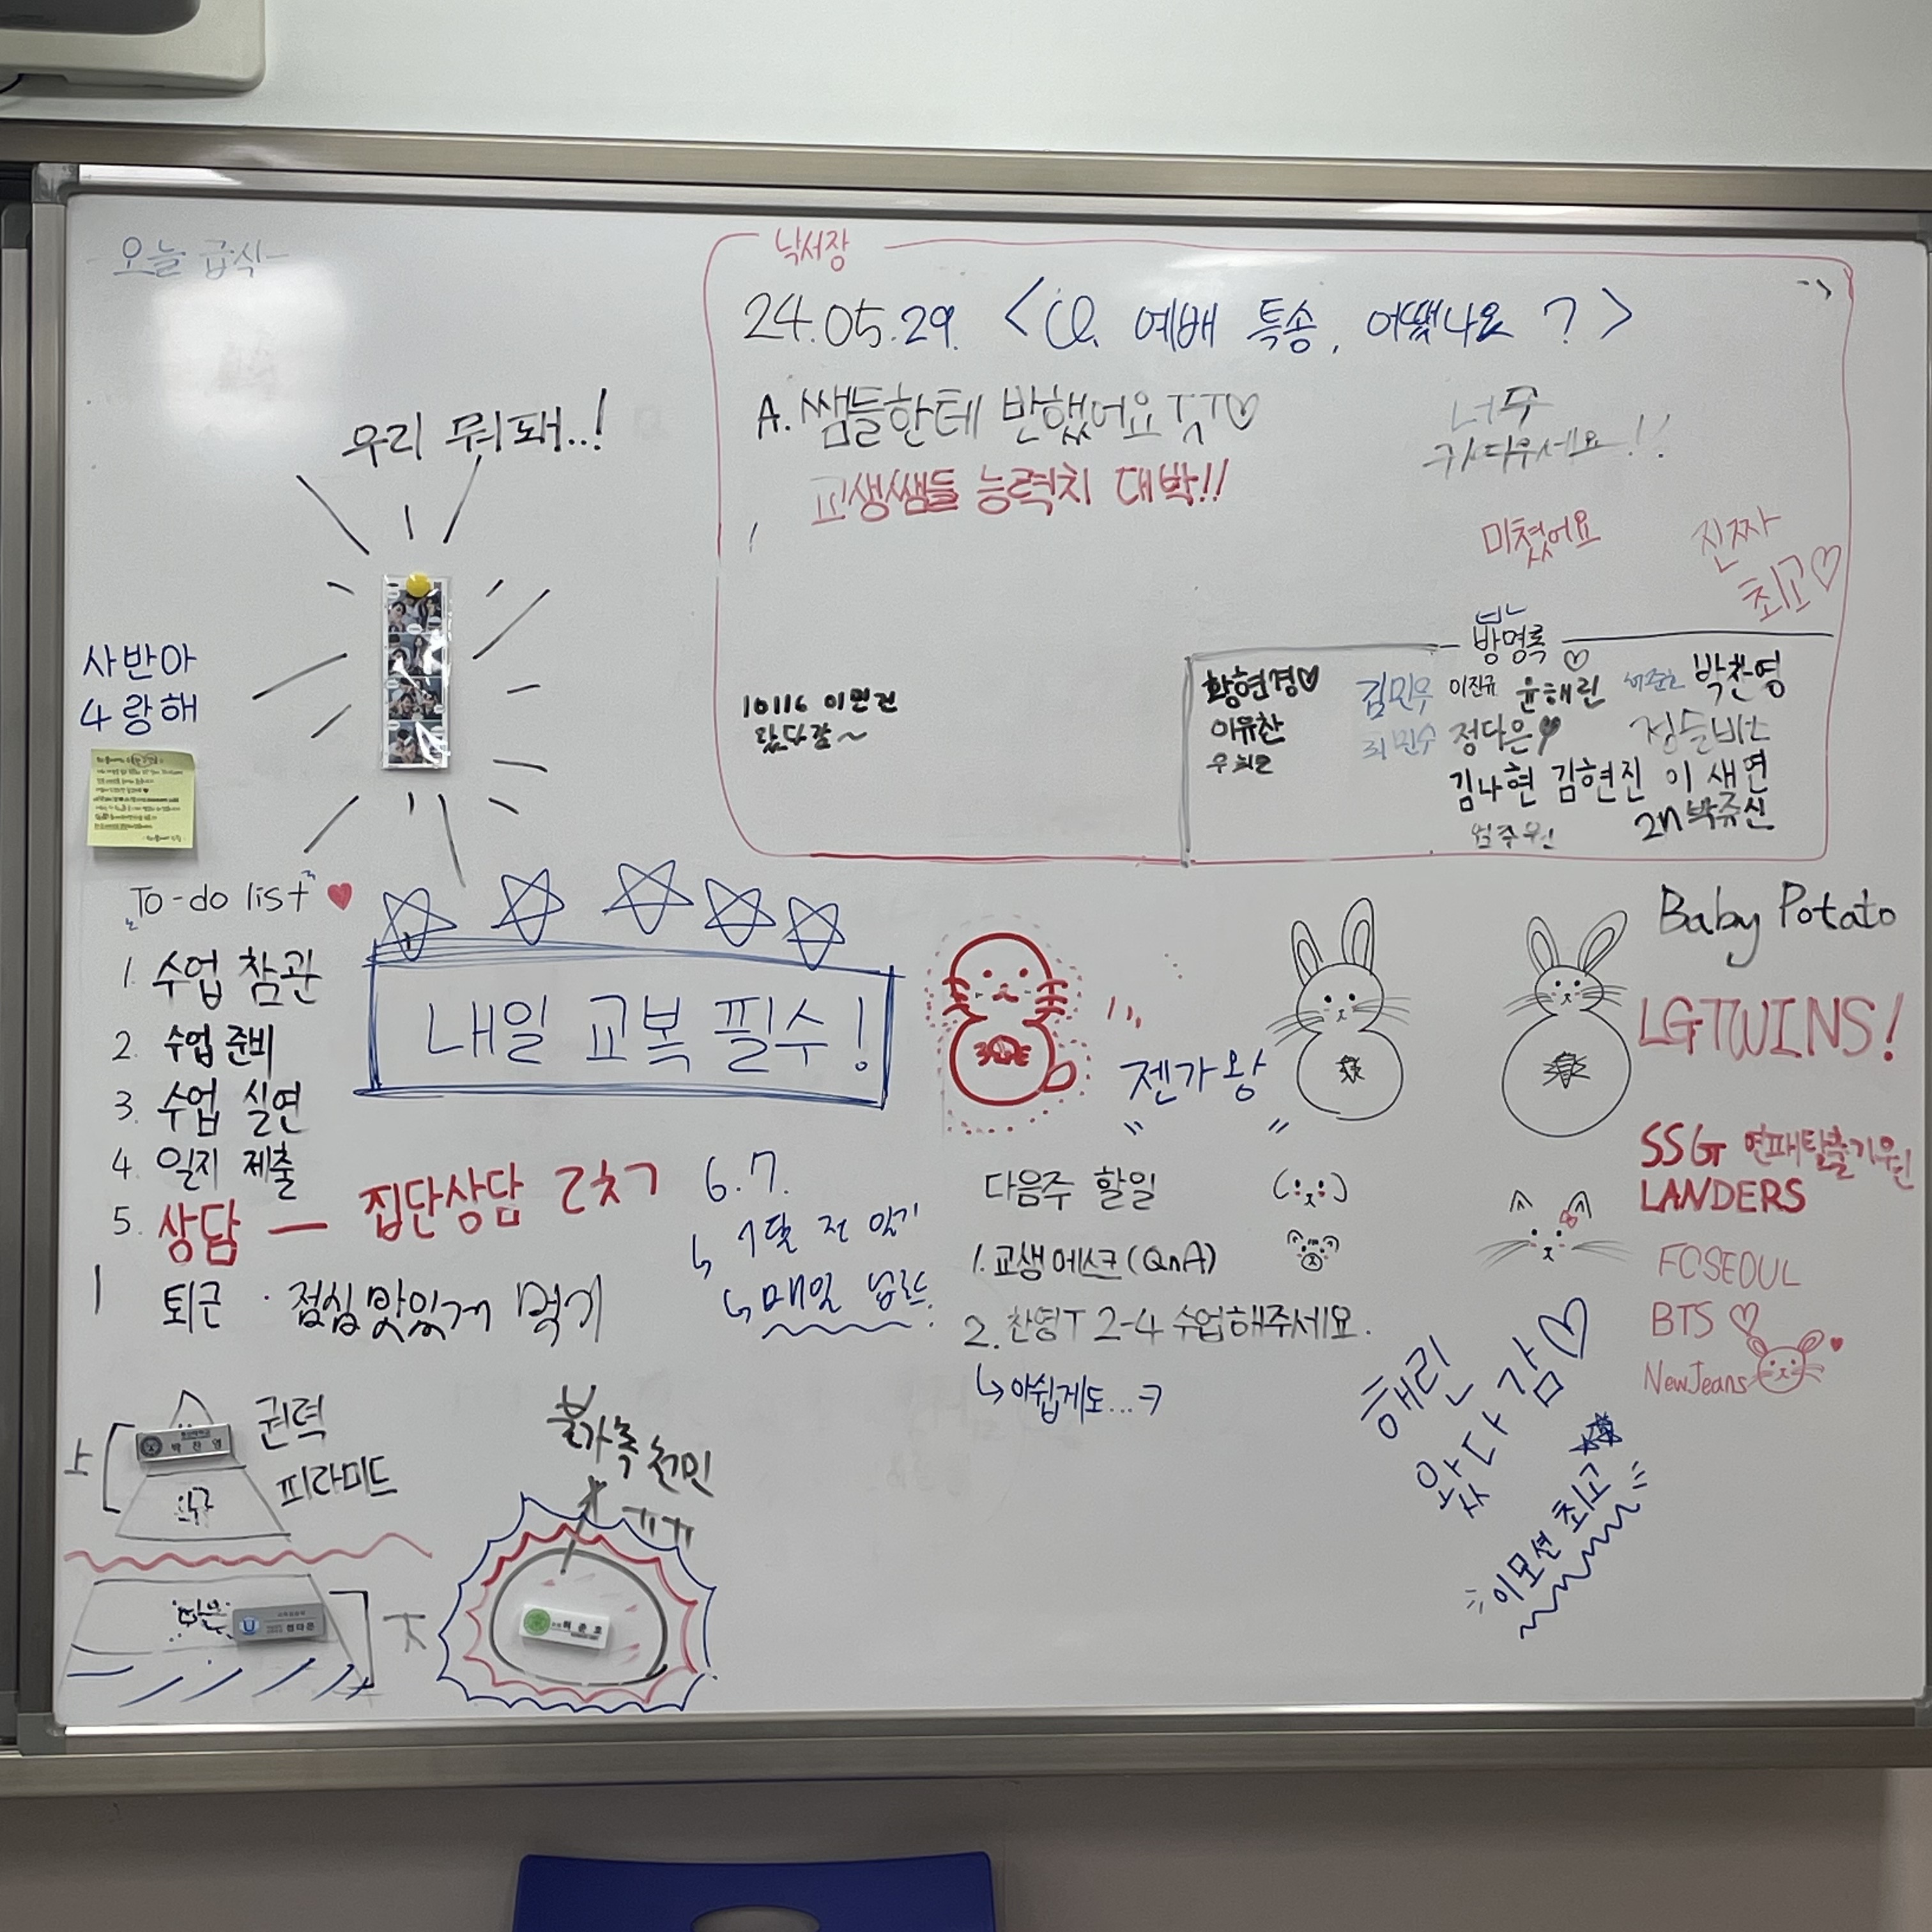 오늘 급식-
우리 뭐돼..!
사반아
4랑해
낙서장
24.05.29. <Q. 예배 특송, 어땠나요 ?>
A. 쌤들한테 반했어요 ㅜㅜ♡
교생쌤들 능력치 대박!!
너무
귀여우세요!!
미쳤어요
진짜
최고♡
10116 이민건
왔다감~
방명록
♡
황현경♡ 김민우 이진규 윤해린 허준호 박찬영
이유찬 최민수 정다은♥
김나현 김현진 이새연
2n박규신
엄주원
To-do list ♥
1. 수업 참관
2. 수업 준비
3. 수업 실연
4. 일지 제출
5. 상담 — 집단상담 2차기
퇴근 · 점심맛있게 먹기
내일 교복 필수!
6.7.
↳ 1달 전 일기
↳ 매일
젠가왕
다음주 할일
1. 교생에스크(QnA)
2. 찬영T 2-4 수업해주세요.
↳ 아쉽게도...ㅋ
Baby Potato
LGTWINS!
SSG 연패탈출기원
LANDERS
FCSEOUL
BTS ♡
NewJeans
해린
왔다감♡
이모션 최고
상
박찬영
권력
피라미드
하
정다은
불가촉천민
ㅠㅠ
허준호